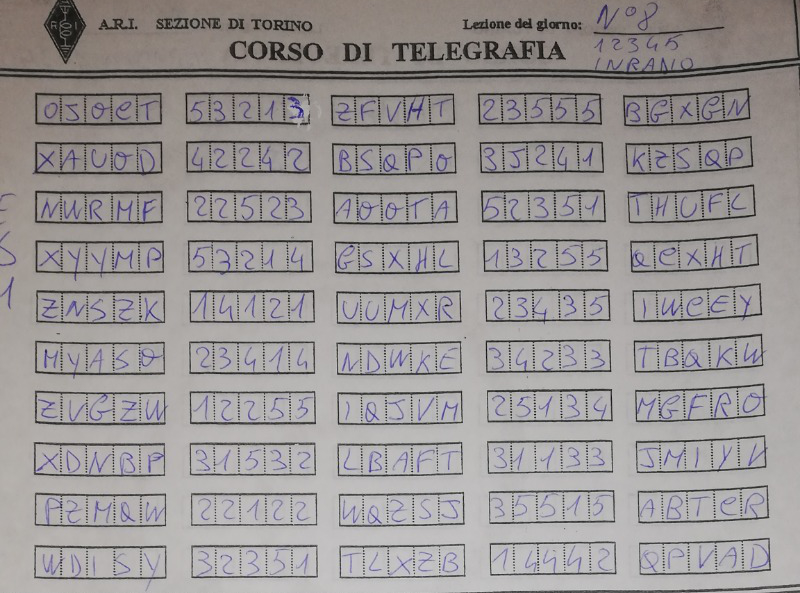 A.R.I. SEZIONE DI TORINO Lezione del giorno: N°8
CORSO DI TELEGRAFIA 12345
INRANO
OJOCT 53213 ZFVHT 23555 BGXGN
XAUOD 42242 BSQPO 35241 KZSQP
NWRMF 22523 AOOTA 52351 THUFL
XYYMP 53214 GSXHL 13255 QCXHT
ZNSZK 14121 UUMXR 23435 IWCEY
MYASO 23414 NDWKE 34233 TBQKW
ZVGZW 12255 IQJVM 25134 MGFRO
XDNBP 31532 LBAFT 31133 JMIYV
PZMQW 22122 WQZSJ 35515 ABTCR
WDISY 32351 TLXZB 14442 QPVAD